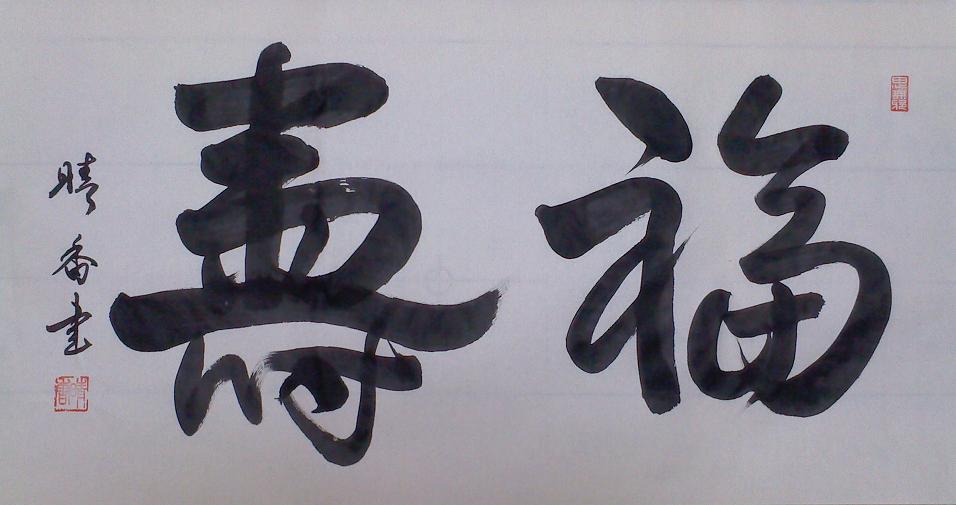 福壽
晴香書